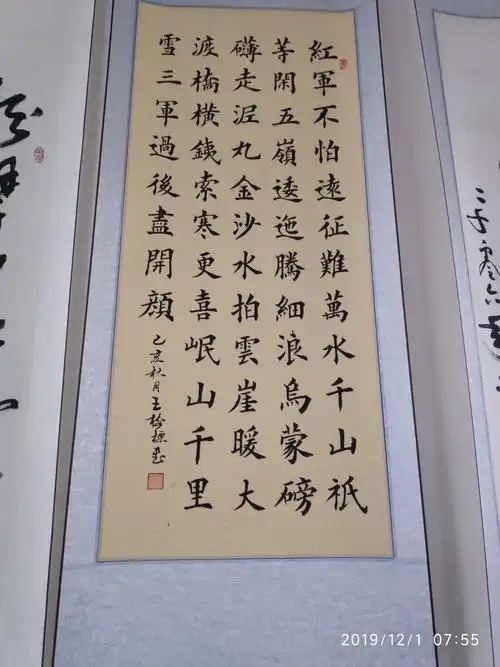 紅軍不怕遠征難萬水千山祇
等閑五嶺逶迤騰細浪烏蒙磅
礴走泥丸金沙水拍雲崖暖大
渡橋橫銕索寒更喜岷山千里
雪三軍過後盡開顔
己亥秋月王
2019/12/1 07:55